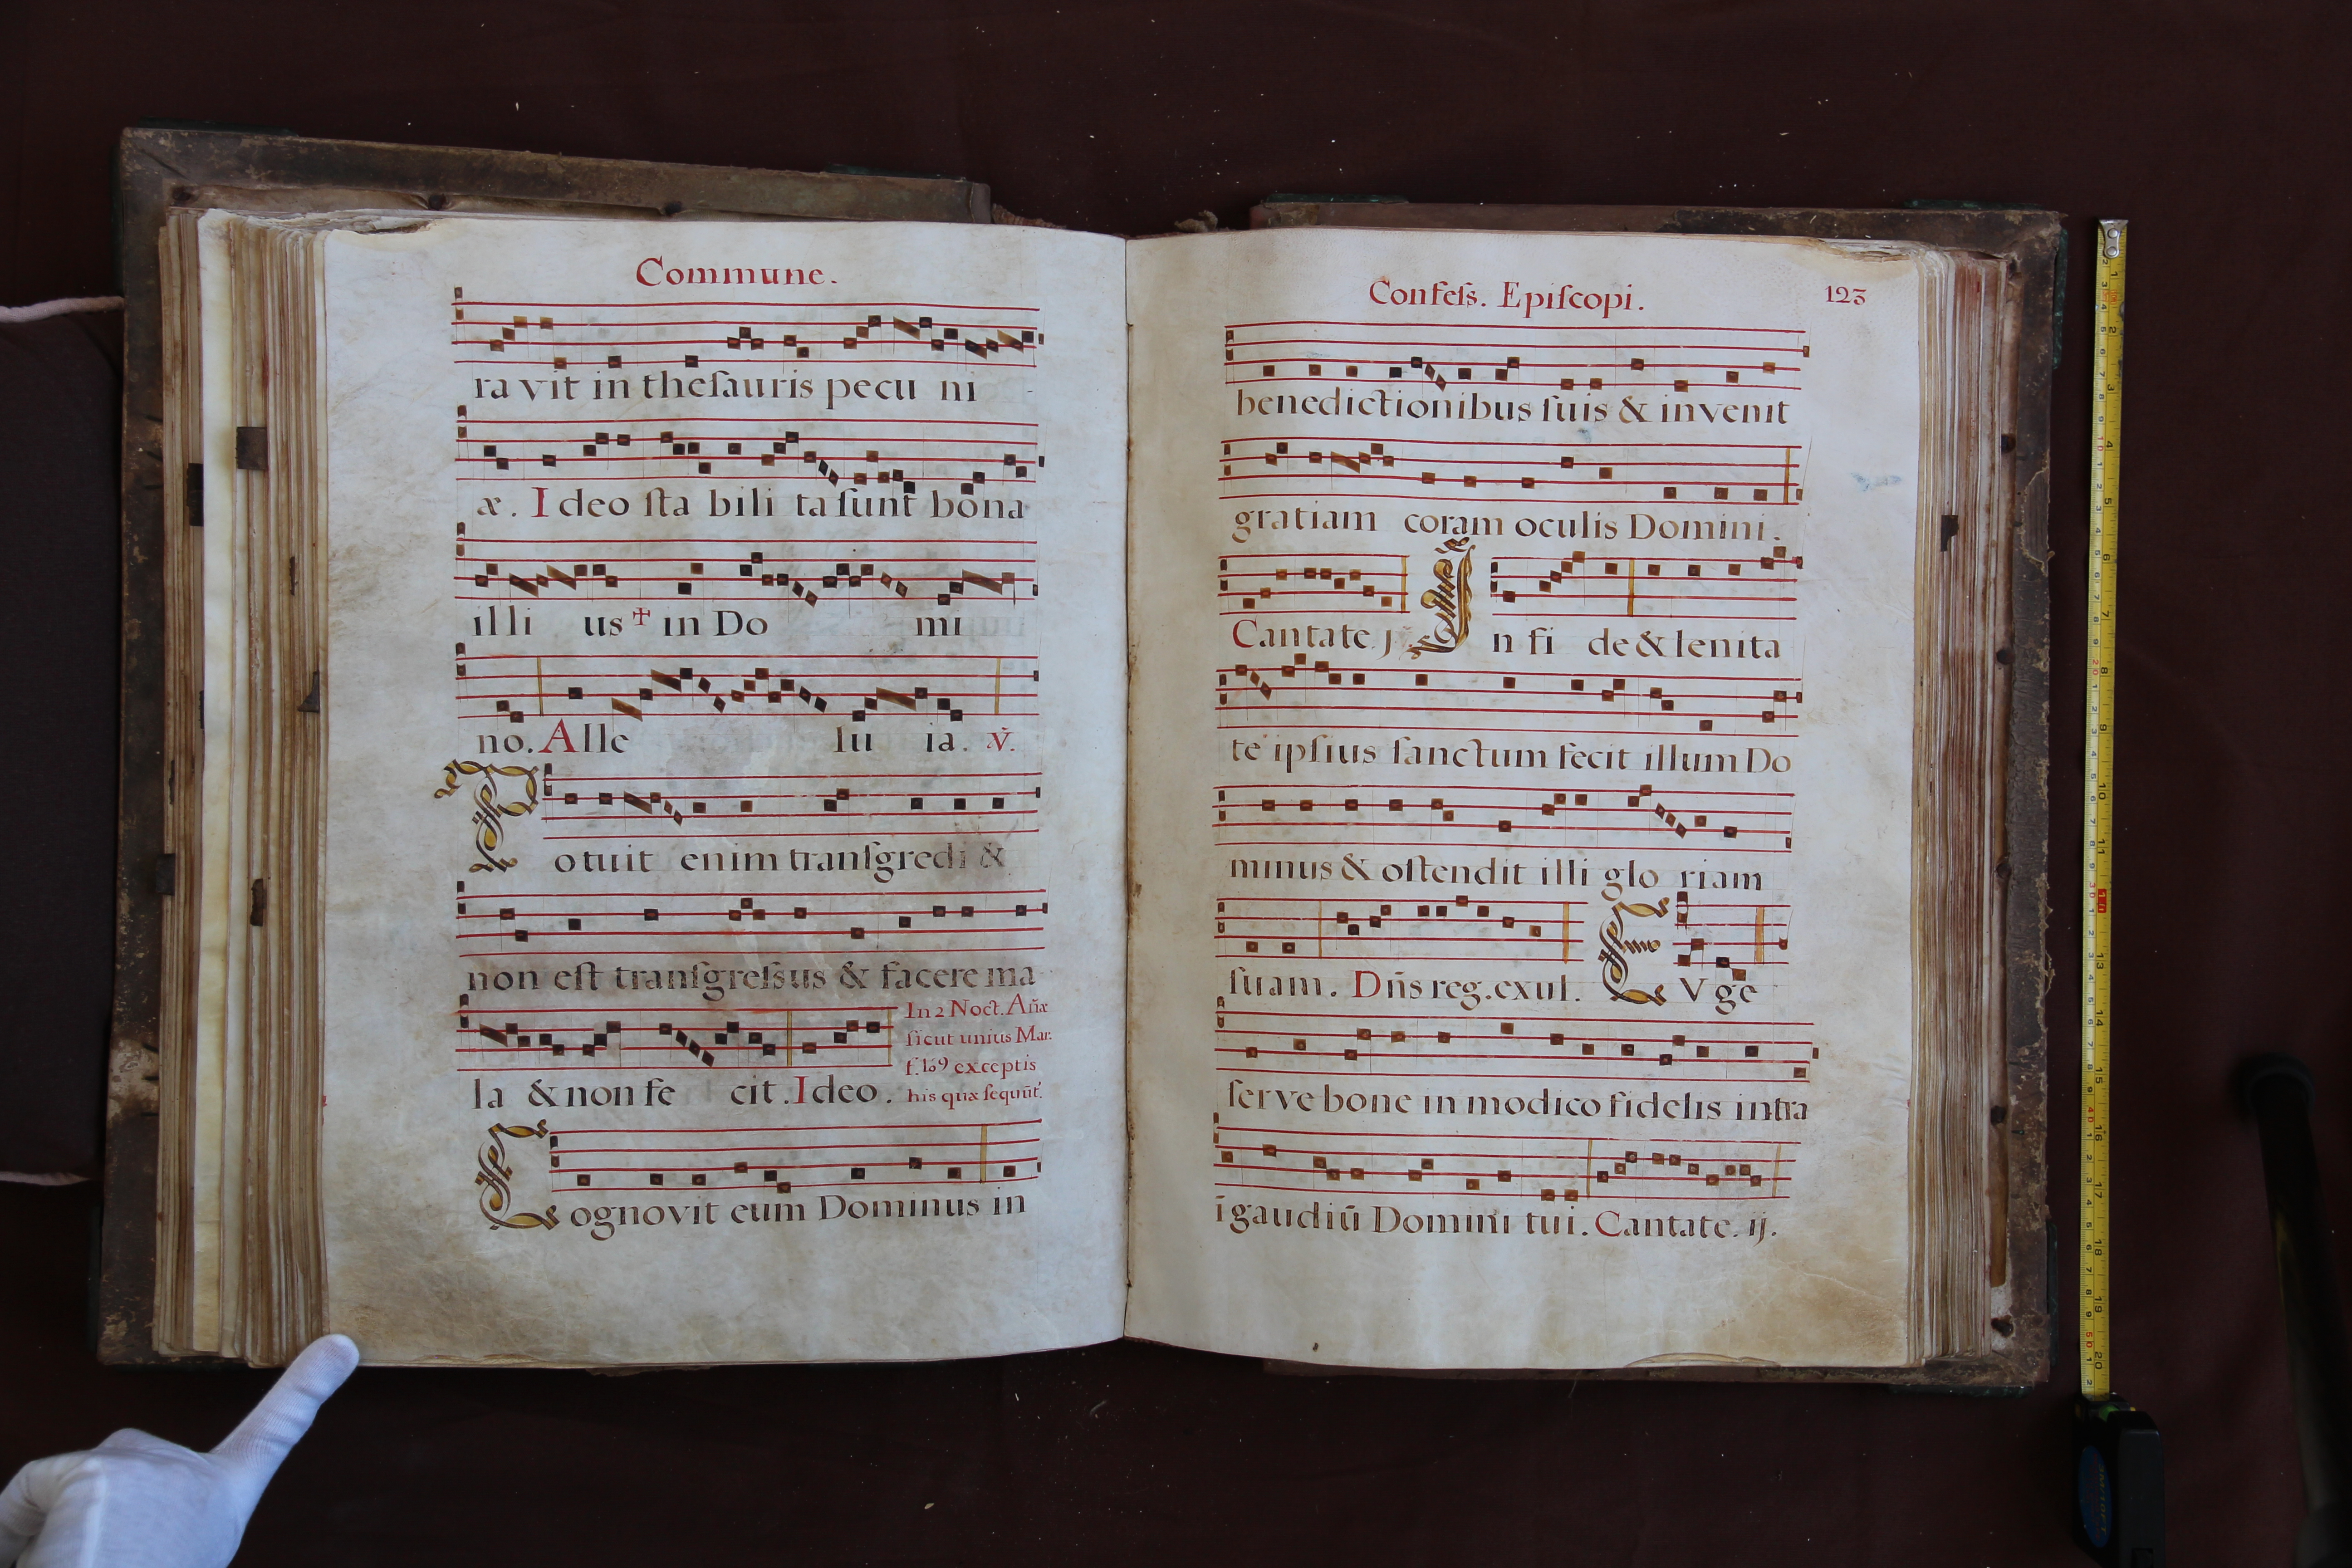 Commune.
ra vit in theſauris pecu ni
æ. I deo ſta bili ta ſunt bona
illi us ☩ in Do mi
no. Alle lu ia. ℣.
P otuit enim tranſgredi &
non eſt tranſgreſsus & facere ma
In 2 Noct. Añæ
ſicut unius Mar.
exceptis
his quæ ſequūt.
la & non fe cit. Ideo.
C ognovit eum Dominus in
Confeſs. Epiſcopi. 123
benedictionibus ſuis & invenit
gratiam coram oculis Domini.
Cantate j I n fi de & lenita
te ipſius ſanctum fecit illum Do
minus & oſtendit illi glo riam
ſuam. Dñs reg. exul. E V ge
ſerve bone in modico fidelis intra
ī gaudiū Domini tui. Cantate. ij.